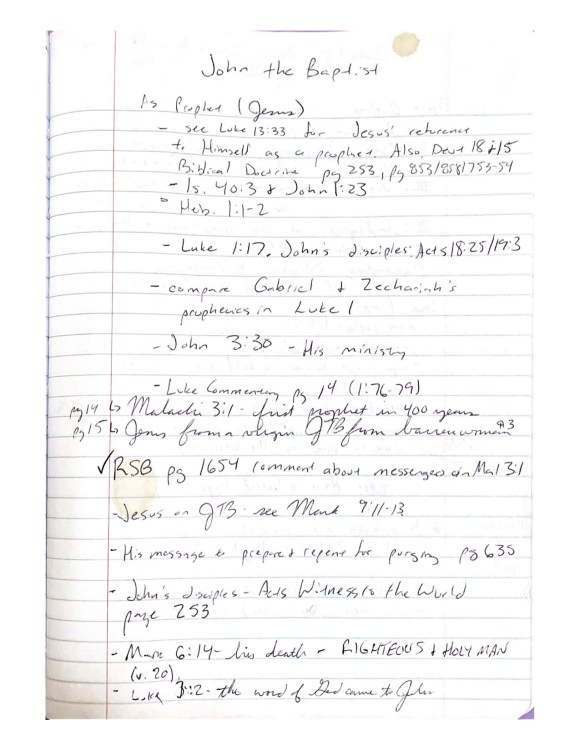 John the Baptist
As Prophet (Jesus)
- see Luke 13:33 for Jesus' reference
to Himself as a prophet. Also, Deut 18:15
Biblical Doctrine pg 253, pg 853/858/753-54
- Is. 40:3 & John 1:23
- Heb. 1:1-2
- Luke 1:17. John's disciples: Acts 18:25/19:3
- compare Gabriel & Zechariah's
prophecies in Luke 1
- John 3:30 - His ministry
- Luke Commentary pg 14 (1:76-79)
pg 14 ↳ Malachi 3:1 - first prophet in 400 years
pg 15 ↳ Jesus from a virgin JTB from barren woman
✓ RSB pg 1654 comment about messengers in Mal 3:1
- Jesus on JTB - see Mark 9:11-13
- His message to prepare & repent for purging pg 635
- John's disciples - Acts Witness to the World
page 253
- Mark 6:14 - his death - RIGHTEOUS & HOLY MAN
(v. 20).
- Luke 3:2 - the word of God came to John